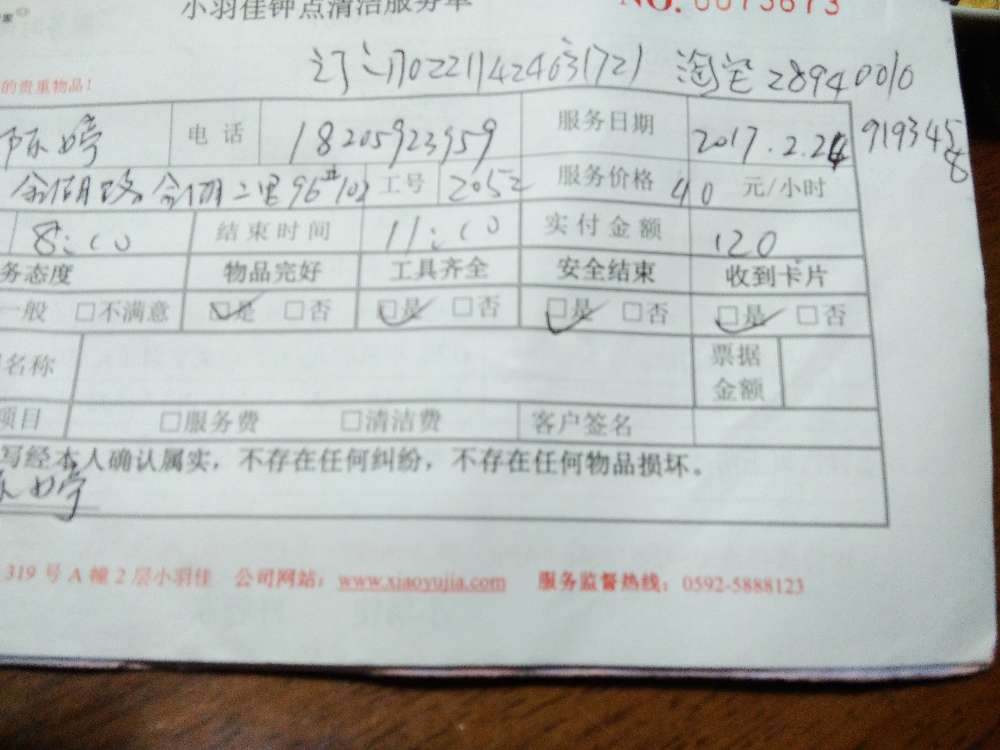 小羽佳钟点清洁服务单 NO. 0073673
的贵重物品!
订订1702211424631721 淘宝 28940010
陈婷 电话 18205923959 服务日期 2017.2.24 9193458
96#102 工号 2052 服务价格 40 元/小时
8:00 结束时间 11:00 实付金额 120
务态度 物品完好 工具齐全 安全结束 收到卡片
一般 □不满意 □是 □否 □是 □否 □是 □否 □是 □否
名称 票据金额
项目 □服务费 □清洁费 客户签名
写经本人确认属实，不存在任何纠纷，不存在任何物品损坏。
陈婷
319 号 A 幢 2 层小羽佳 公司网站：www.xiaoyujia.com 服务监督热线：0592-5888123